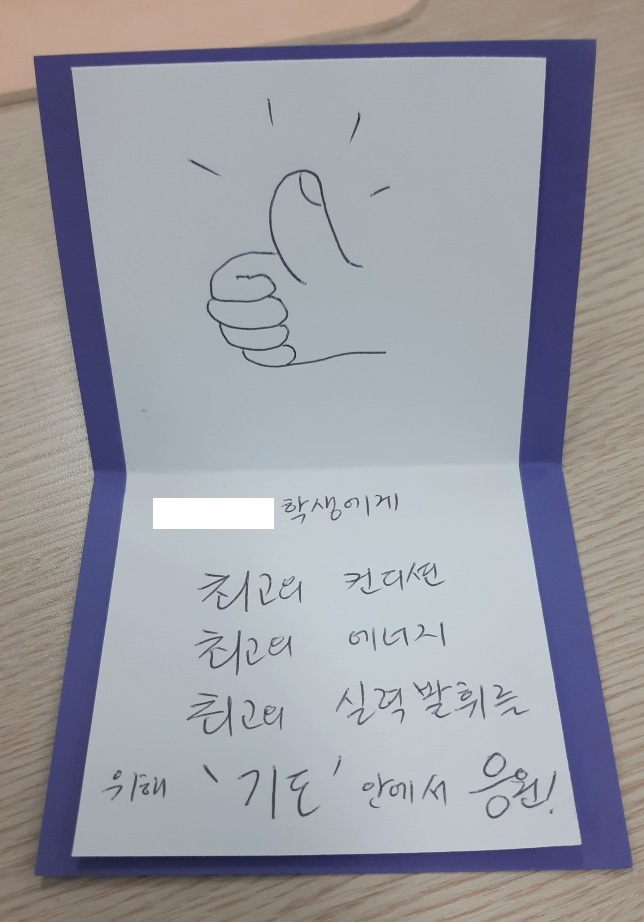 학생에게
최고의 컨디션
최고의 에너지
최고의 실력발휘를
위해 '기도' 안에서 응원!